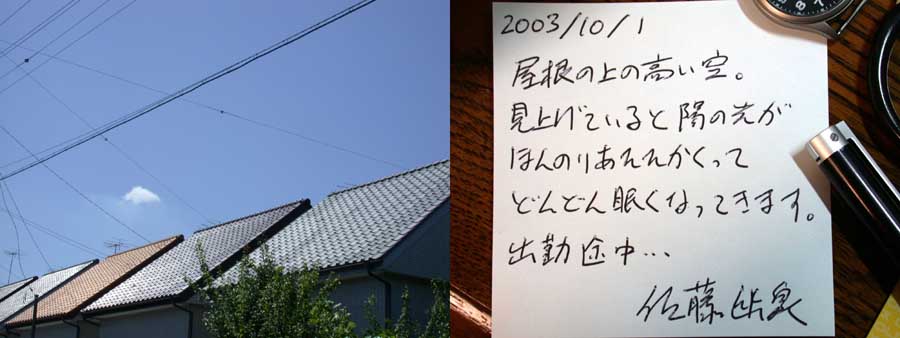 2003/10/1
屋根の上の高い空。
見上げていると陽の光が
ほんのりあたたかくって
どんどん眠くなってきます。
出勤途中…
佐藤